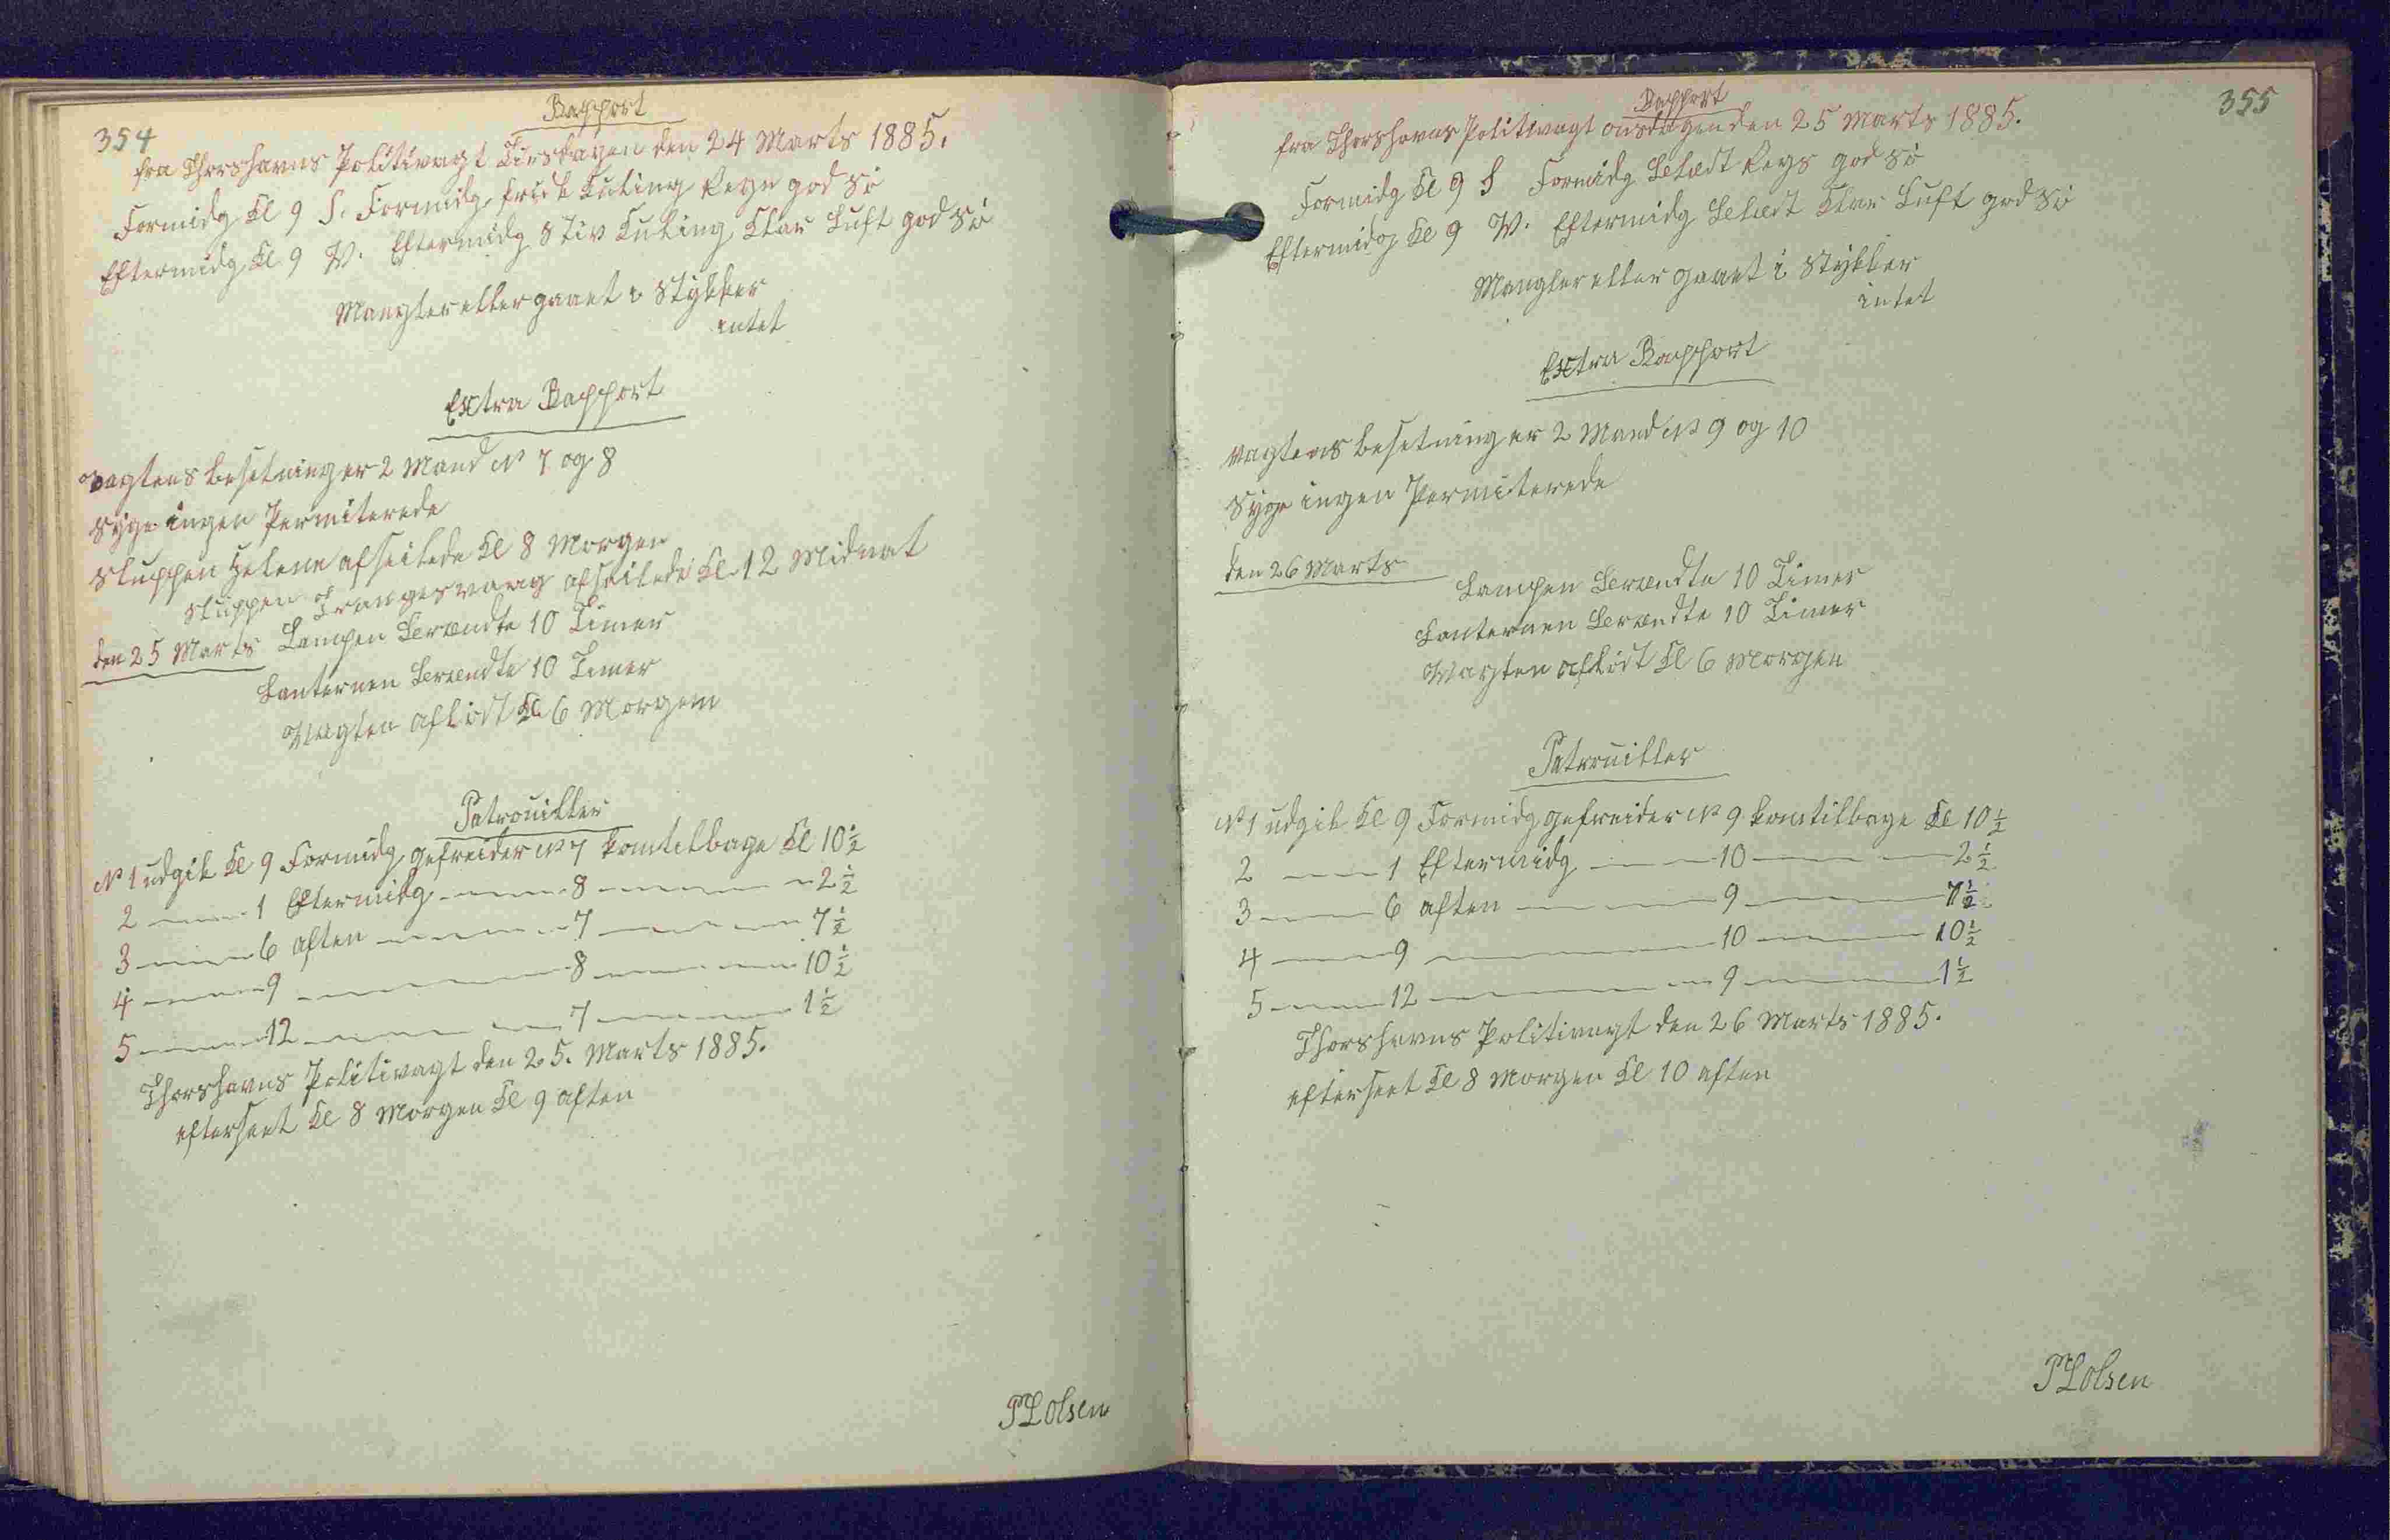 354
Rapport
fra Thorshavns Politivagt Tirsdagen den 24 Marts 1885.
Formidg Kl 9 S. Formidg frisk Kuling Regn god Sö
Eftermidg Kl 9 V. Eftermidg Stiv Kuling Klar Luft god Sö
Mangler eller gaaet i Stykker
intet
Extra Rapport
Vagtens Besetning er 2 Mand No 7 og 8
Syge ingen Permiterede
Sluppen Helene afseilede Kl 8 Morgen
Sluppen af Trangesvaag afseilede Kl 12 Midnat
den 25 Marts Lampen Brændte 10 Timer
Lanternen Brændte 10 Timer
Vagten aflöst Kl 6 Morgen
Patrouiller
No 1 udgik Kl 9 Formidg gefreider No 7 kom tilbage Kl 10 1/2
2 — 1 Eftermidg — 8 — 2 1/2
3 — 6 aften — 7 — 7 1/2
4 — 9 — 8 — 10 1/2
5 — 12 — 7 — 1 1/2
Thorshavns Politivagt den 25. Marts 1885.
efterseet Kl 8 Morgen Kl 9 aften
PLOlsen
355
Rapport
fra Thorshavns Politivagt onsdagen den 25 Marts 1885.
Formidg Kl 9 S Formidg Beladt god Sö
Eftermidg Kl 9 V. Eftermidg Klar Luft god Sö
Mangler eller gaaet i Stykker
intet
Extra Rapport
Vagtens Besetning er 2 Mand No 9 og 10
Syge ingen Permiterede
den 26 Marts
Lampen Brændte 10 Timer
Lanternen Brændte 10 Timer
Vagten aflöst Kl 6 Morgen
Patrouiller
No 1 udgik Kl 9 Formidg gefreider No 9 kom tilbage Kl 10 1/2
2 — 1 Eftermidg — 10 — 2 1/2
3 — 6 aften — 9 — 7 1/2
4 — 9 — 10 — 10 1/2
5 — 12 — 9 — 1 1/2
Thorshavns Politivagt den 26 Marts 1885.
efterseet Kl 8 Morgen Kl 10 aften
PLOlsen